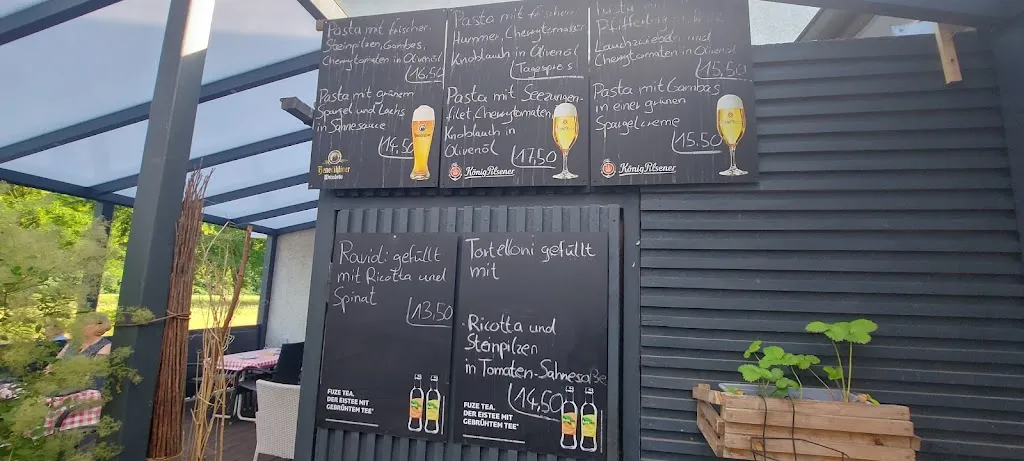 Pasta mit frischen
Steinpilzen, Gambas,
Cherrytomaten in Olivenöl
16,50
Pasta mit grünem
Spargel und Lachs
in Sahnesauce
14,50
Pasta mit frischem
Hummer, Cherrytomaten
Knoblauch in Olivenöl
Tagespreis
Pasta mit Seezungen-
filet, Cherrytomaten,
Knoblauch in
Olivenöl
17,50
König Pilsener
Pasta mit
Pfifferlingen
Lauchzwiebeln und
Cherrytomaten in Olivenöl
15,50
Pasta mit Gambas
in einer grünen
Spargelcreme
15.50
König Pilsener
Ravioli gefüllt
mit Ricotta und
Spinat
13,50
FUZE TEA.
DER EISTEE MIT
GEBRÜHTEM TEE*
Tortelloni gefüllt
mit
Ricotta und
Steinpilzen
in Tomaten-Sahnesoße
14,50
FUZE TEA.
DER EISTEE MIT
GEBRÜHTEM TEE*